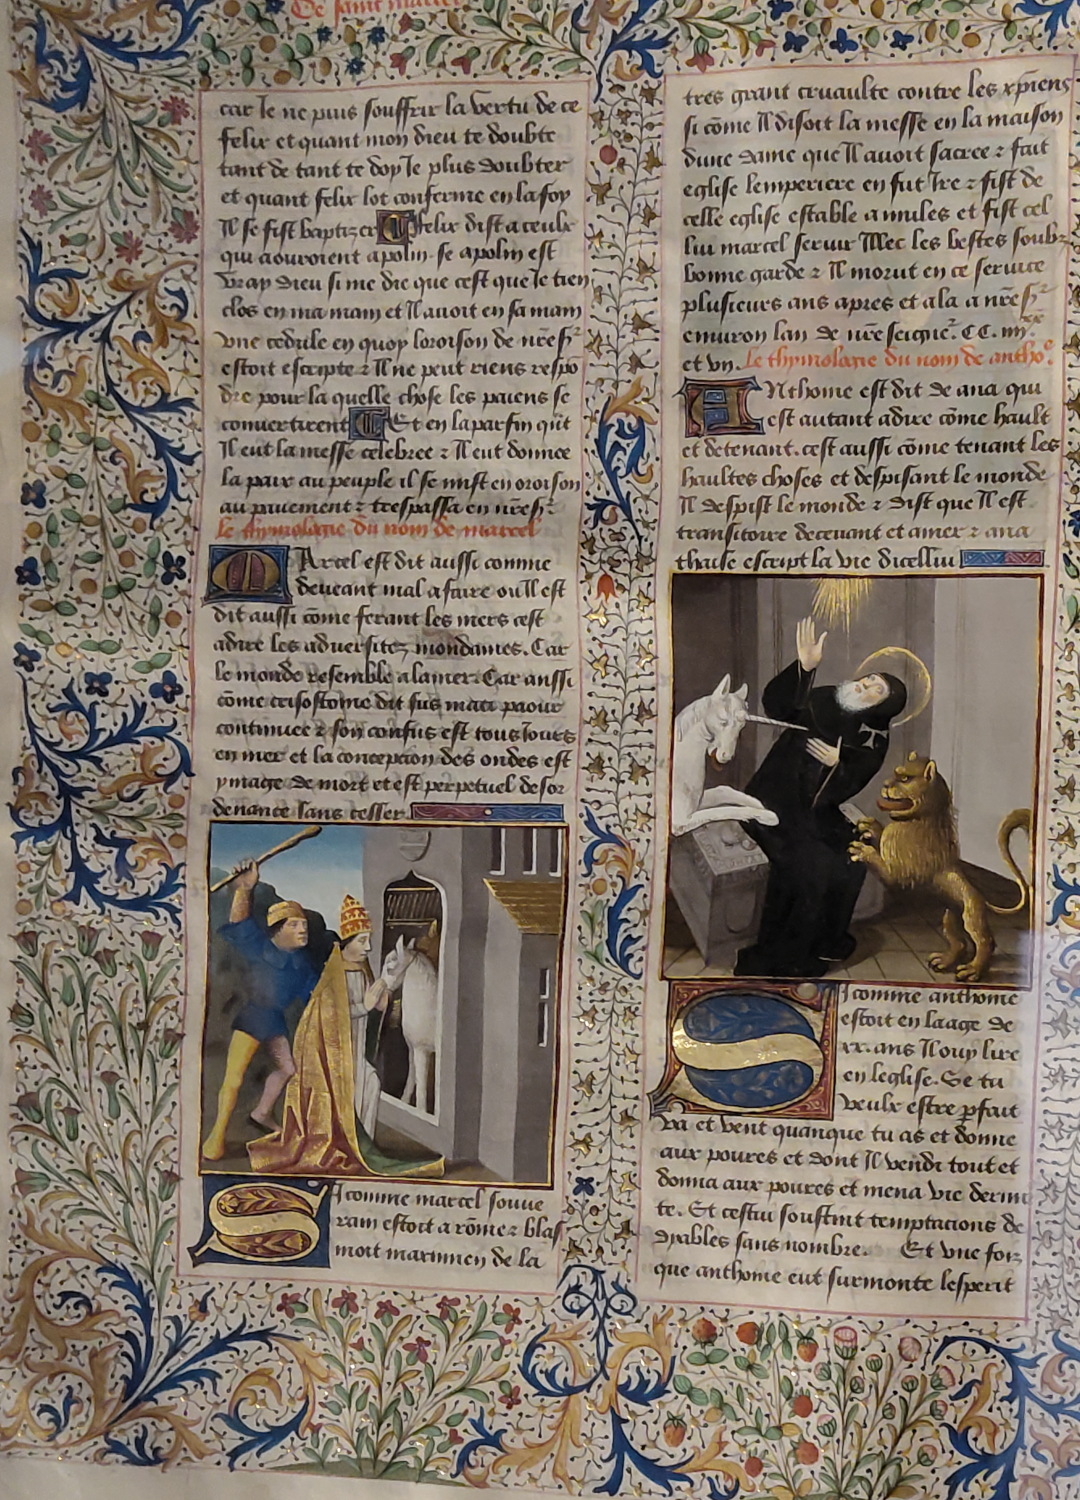 De saint marcel
car Ie ne puis souffrir la vertu de ce
felix et quant mon dieu te doubte
tant de tant te doy Ie plus doubter
et quant felix lot conferme en la foy
Il se fist baptizer Felix dist a ceulx
qui aouroient apolin. se apolin est
vray dieu si me die que cest que Ie tien
clos en ma main et Il auoit en sa main
vne cedulle en quoy loroison de nr̄e sr̄
estoit escripte ⁊ Il ne peut riens respō
dre pour la quelle chose les paiens se
conuertirent Et en la parfin q̄nt
Il eut la messe celebree ⁊ Il eut donnee
la paix au peuple il se mist en oroison
au pauement ⁊ trespassa en nr̄e sr̄
le thymologie du nom de marcel
MArcel est dit aussi comme
deueant mal a faire ou Il est
dit aussi cōme ferant les mers cest
adire les aduersitez mondaines. Car
le monde resemble a la mer. Car aussi
cōme crisostome dit sus mati paour
continuee ⁊ son confus est tousiours
en mer et la concepcion des ondes est
ymage de mort et est perpetuel desor
denance sans cesser
SI comme marcel souue
rain estoit a rōme ⁊ blas
moit maximien de la
tres grant cruaulte contre les xp̄iens
si cōme Il disoit la messe en la maison
dune dame que Il auoit sacree ⁊ fait
eglise lemperiere en fut Ire ⁊ fist de
celle eglise estable a mules et fist cel
lui marcel seruir Illec les bestes soubz
bonne garde ⁊ Il morut en ce seruice
plusieurs ans apres et ala a nr̄e sr̄
enuiron lan de nr̄e seigne᷑. CC. iiij.xx
et vn. le thymologie du nom de antho᷑
ANthoine est dit de ana qui
est autant adire cōme hault
et detenant. cest aussi cōme tenant les
haultes choses et despisant le monde
Il despist le monde ⁊ dist que Il est
transitoire deceuant et amer ⁊ ana
thaise escript la vie dicellui
SI comme anthoine
estoit en laage de
xx. ans Il ouy lire
en leglise. Se tu
veulx estre ꝑfait
va et vent quanque tu as et donne
aux poures et dont Il vendi tout et
donna aux poures et mena vie dermi
te. Et cestui soustint temptacions de
dyables sans nombre. Et vne foiz
que anthoine eut surmonte lesperit